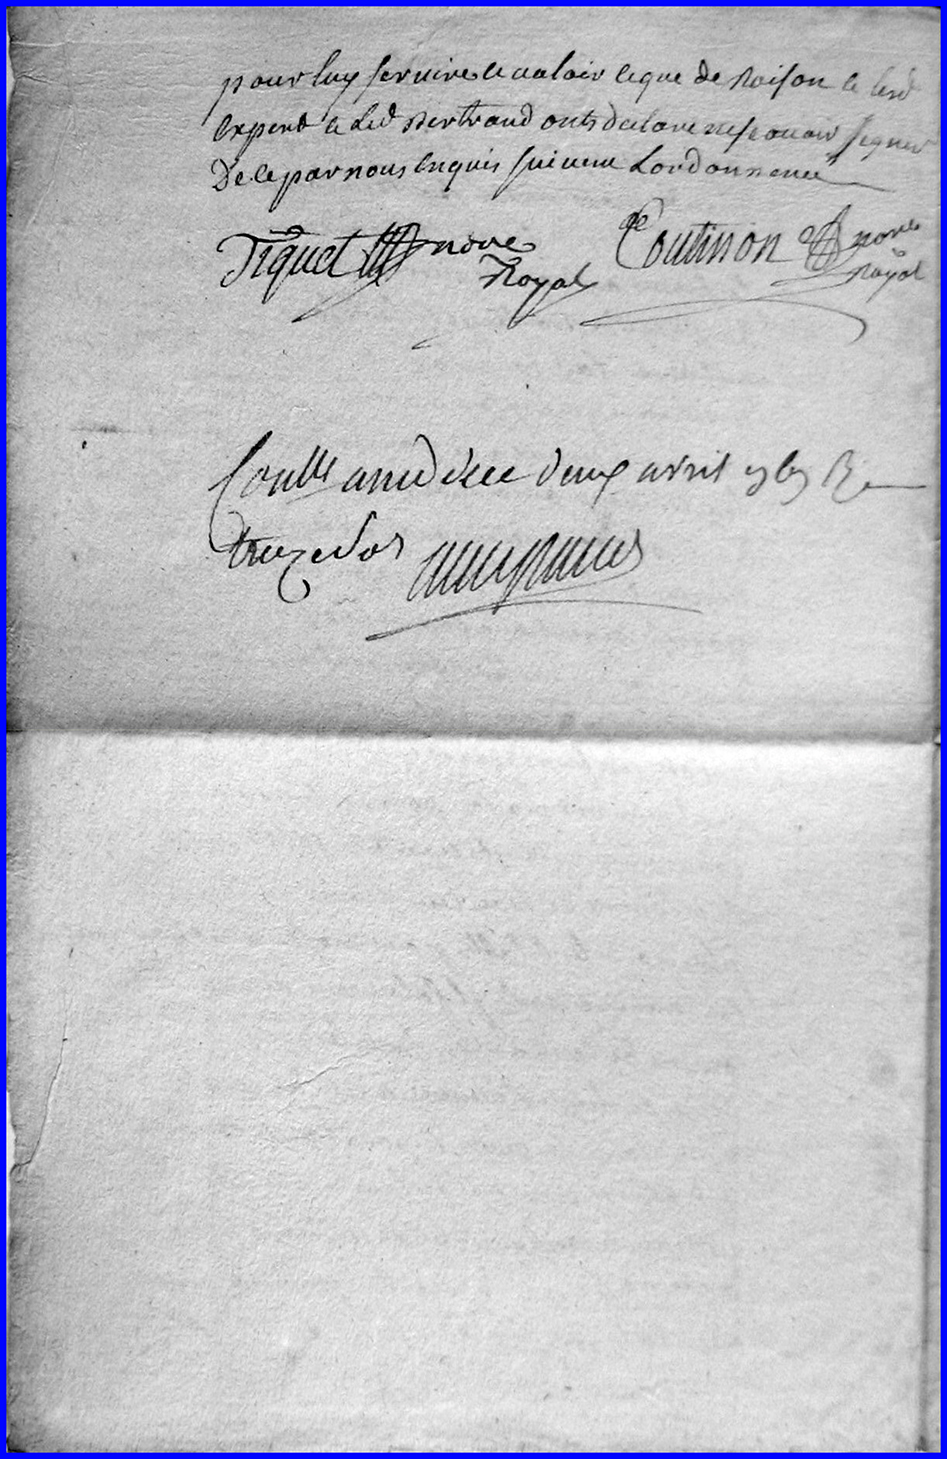 pour luy servire et valoir ceque de Raison le led
expert et led Bertrand onts declare ne scavoir signer
De ce par nous enquis suivent Lordonnence
Tiquet nore Coutinon nore
Royal Royal
Conlle a deux avril
treze sols